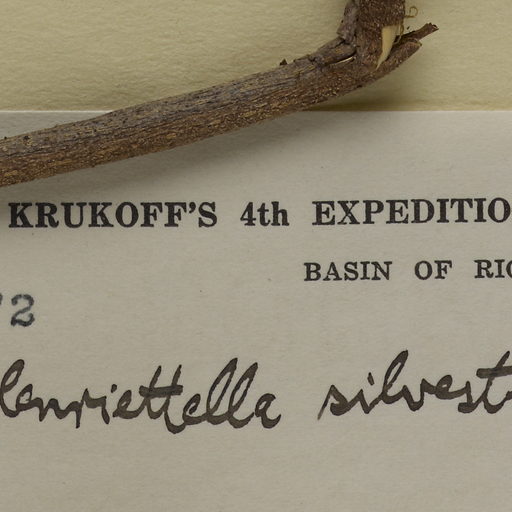 KRUKOFF'S 4th EXPEDITIO
BASIN OF RIO
72
Henriettella silvest